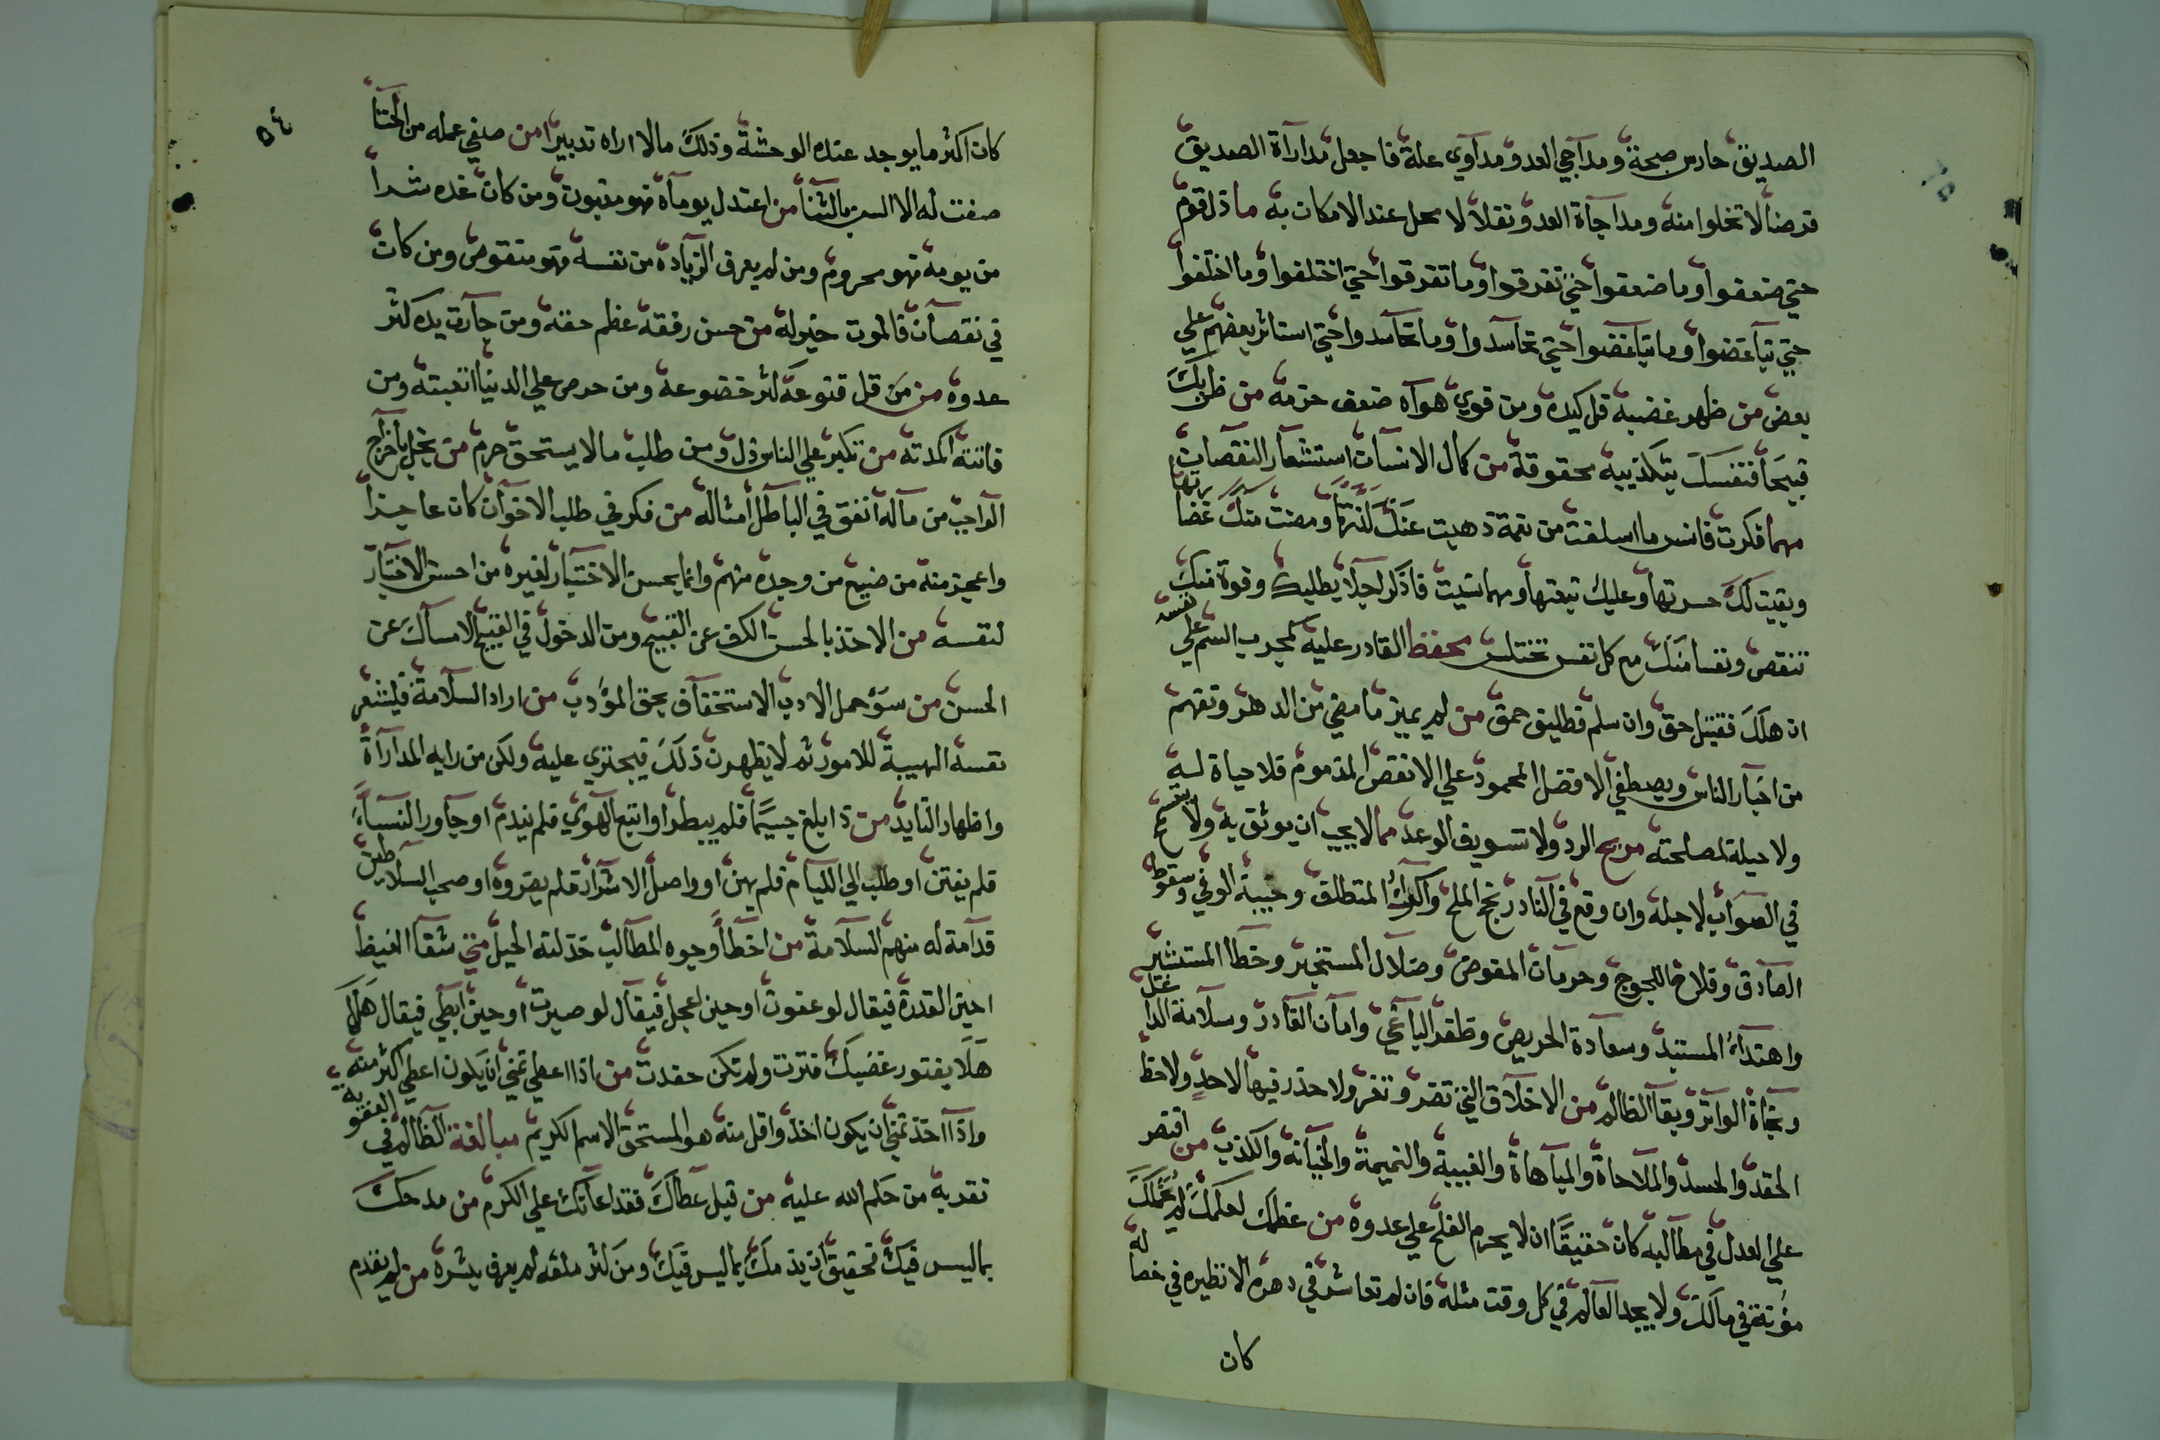 الصديق حارس صحة ومداجي العدو مداوي علة فاجعل مدارأة الصديق
فرضا لا تخلوا منه ومداجاة العدو نفلا لا محل عند الامكان به ماذل قوم
حتي ضعفوا وما ضعفوا حتي تفرقوا وما تفرقوا حتي اختلفوا وما اختلفوا
حتي تباغضوا وما تباغضوا حتي تحاسدوا وما تحاسدوا حتي استاثر بعضهم علي
بعض من ظهر غضبه قل كيده ومن قوي هواه ضعف حزمه من ظن بك
قبيحا فنفسك بتكذيبه محقوقة من كمال الانسان استشعار النقصان
مهما فكرت فانس ما اسلفت من نعمة ذهبت عنك لذتها ومضت منك غضارتها
وبقيت لك حسرتها وعليك تبعتها ومهما نسيت فاذكر اجلا يطلبك وقوة منك
تنقص ونفسا منك مع كل نفس تختلس محفظ القادر عليه كمجرب السم علي نفسه
ان هلك فقتيل حق وان سلم فطليق حمق من لم يميز ما مضي من الدهر وتفهم
من اخبار الناس ويصطفي الافضل المحمود علي الانقص المذموم فلا حياة له
ولا حيلة لمصلحته مريح الرد ولا تسويف الوعد مما لا يجب ان يوثق به ولا يقسم
في الصواب لاجله وان وقع في النادر نجح الملح واكداء المتطلق وخيبة الوفي وسقوط
الصادق وفلاح اللجوج وحرمان المفوض وضلال المستخير وخطا المستشير
واهتداء المستبد وسعادة الحريص وظفر الباغي وامان القادر وسلامة الداغل
ونجاة الواتر وبقا الظالم من الاخلاق التي تضر وتغر ولا حذر فيها لاحد ولا حظ
الحقد والحسد والملاحاة والمباهاة والغيبة والنميمة والخيانة والكذب من اقتصر
علي العدل في مطالبه كان حقيقا ان لا يحرم الفلح علي عدوه من عظمك لعلمك لم تملك
مؤنة في مالك ولا يجد العالم في كل وقت مثله فان لم تعاشر في دهره الا نظيره في خصاله
كان
٥٤
كان اكثر ما يوجد عنده الوحشة وذلك مالا اراه تدبيرا من صفي عمله من الخنا
صفت له الالسن بالثنا من اعتدل يوماه فهو مغبون ومن كان غده شرا
من يومه فهو محروم ومن لم يعرف الزيادة من نفسه فهو منقوص ومن كان
في نقصان فالموت خير له من حسن رفقه عظم حقه ومن جارت يده كثر
عدوه من من قل قنوعه كثر خضوعه ومن حرص علي الدنيا اتعبته ومن
فاتته اكمدته من تكبر علي الناس ذل ومن طلب مالا يستحق حرم من بخل باخراج
الواجب من ماله انفق في الباطل امثاله من فكر في طلب الاخوان كان عاجزا
واعجز منه من ضيع من وجده منهم وانما يحسن الاختيار لغيره من احسن الاختيار
لنفسه من الاخذ بالحسن الكف عن القبيح ومن الدخول في القبيح الامساك عن
الحسن من سوء حمل الادب الاستخفاف بحق المؤدب من اراد السلامة فليشعر
نفسه الهيبة للامور ثم لا يظهرن ذلك فيجتري عليه ولكن من رايه المداراة
واظهار التايد من ذا بلغ جسيما فلم يبطر او اتبع الهوي فلم يندم او جاور النساء
فلم يفتن او طلب الي الليام فلم يهن او واصل الاشرار فلم يضروه او صحب السلاطين
فدامة له منهم السلامة من اخطا وجوه المطالب خذلته الحيل متي شفا الغيظ
احين القدرة فيقال لو عفوت او حين اعجل فيقال لو صبرت او حين ابطي فيقال هلا
هلا يفتور غضبك فترت ولم تكن حقدت من اذا اعطي تمني ان يكون اعطي اكثر منه
واذا اخذ تمني ان يكون اخذ واقل منه هو المستحق الاسم الكريم مبالغة الظالم في العقوبة
تقربه من حلم الله عليه من قبل عطاك فقد اعانك علي الكرم من مدحك
بما ليس فيك فحقيق ان يذمك بما ليس فيك ومن كثر ملقه لم يعرف بشره من لم يقدم